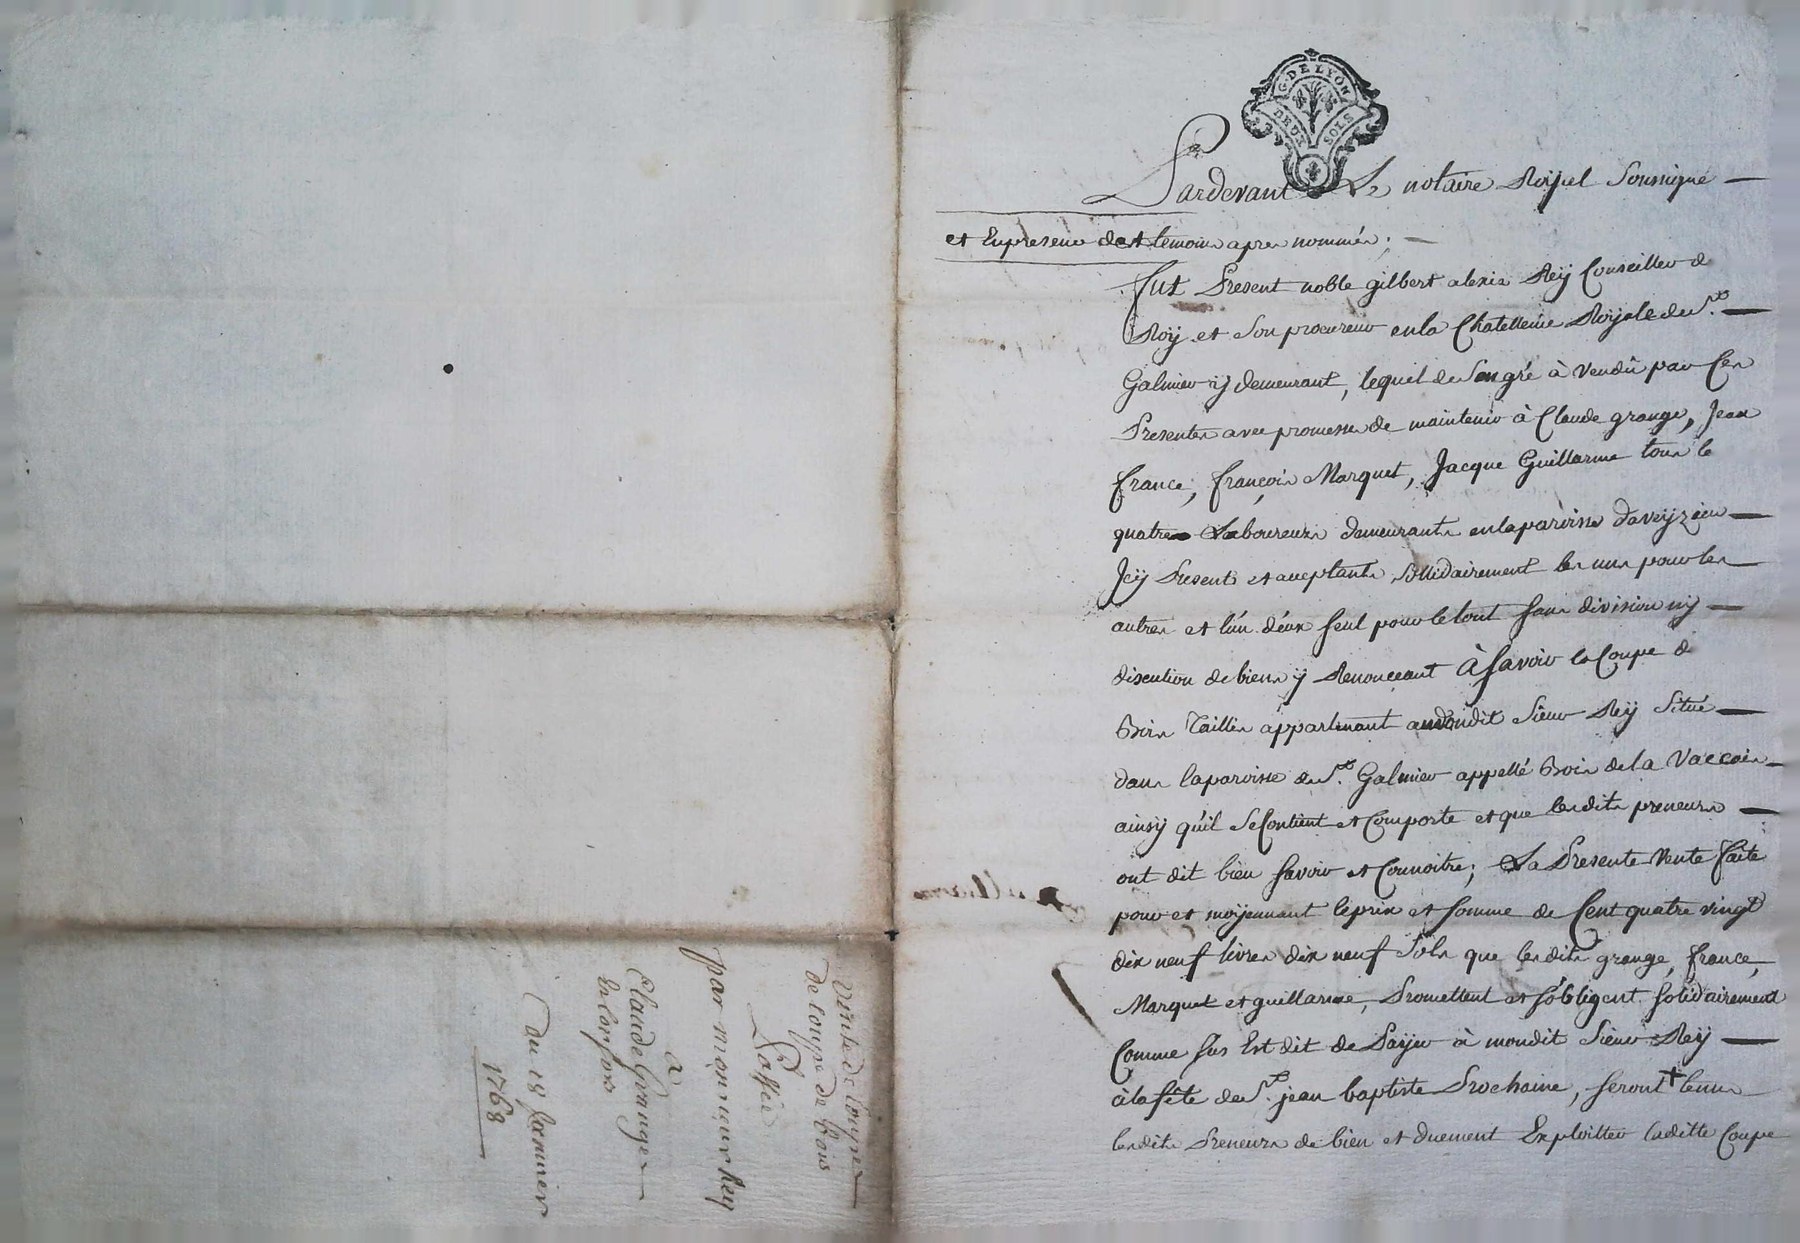 G. DE LYON
DEUX SOLS
Pardevant Le notaire Royal Soussigné
et En presence des temoins apres nommés;
fut Present noble gilbert alexis Rey Conseiller de
Roy et Son procureur en la Chatellenie Royale de St.
Galmier y demeurant, lequel de Son gré à Vendû par Ces
Presentes avec promesse de maintenir à Claude grange, Jean
france, françois Marquet, Jacque Guillarme tous le
quatre Laboureurs demeurants en la paroisse d'aveyzieu
Jcy Presents et acceptants Sollidairement les uns pour les
autres et l'un d'eux seul pour le tout sans division ny
discution de biens y Renonceant à savoir la Coupe de
Bois Taillis appartenant audit Sieur Rey Situé
dans la paroisse de St. Galmier appellé Bois de la Vaccois
ainsy qu'il Se Contient et Comporte et que lesdits preneurs
ont dit bien savoir et Connoitre; La Presente Vente faite
pour et moyennant le prix et somme de Cent quatre vingt
dix neuf livres dix neuf Sols que lesdits grange, france,
Marquet et guillarme, Promettent et s'obligent solidairement
Comme sus Est dit de Payer à mondit Sieur Rey
à la fête de St. jean baptiste Prochaine, seront + tenus
lesdits Preneurs de bien et duement Exploitter laditte Coupe
Vente de Coupe
de Coupe de bois
Passée
par monsieur Rey
a
Claude Grange
& Consors
du 18 Janvier
1768